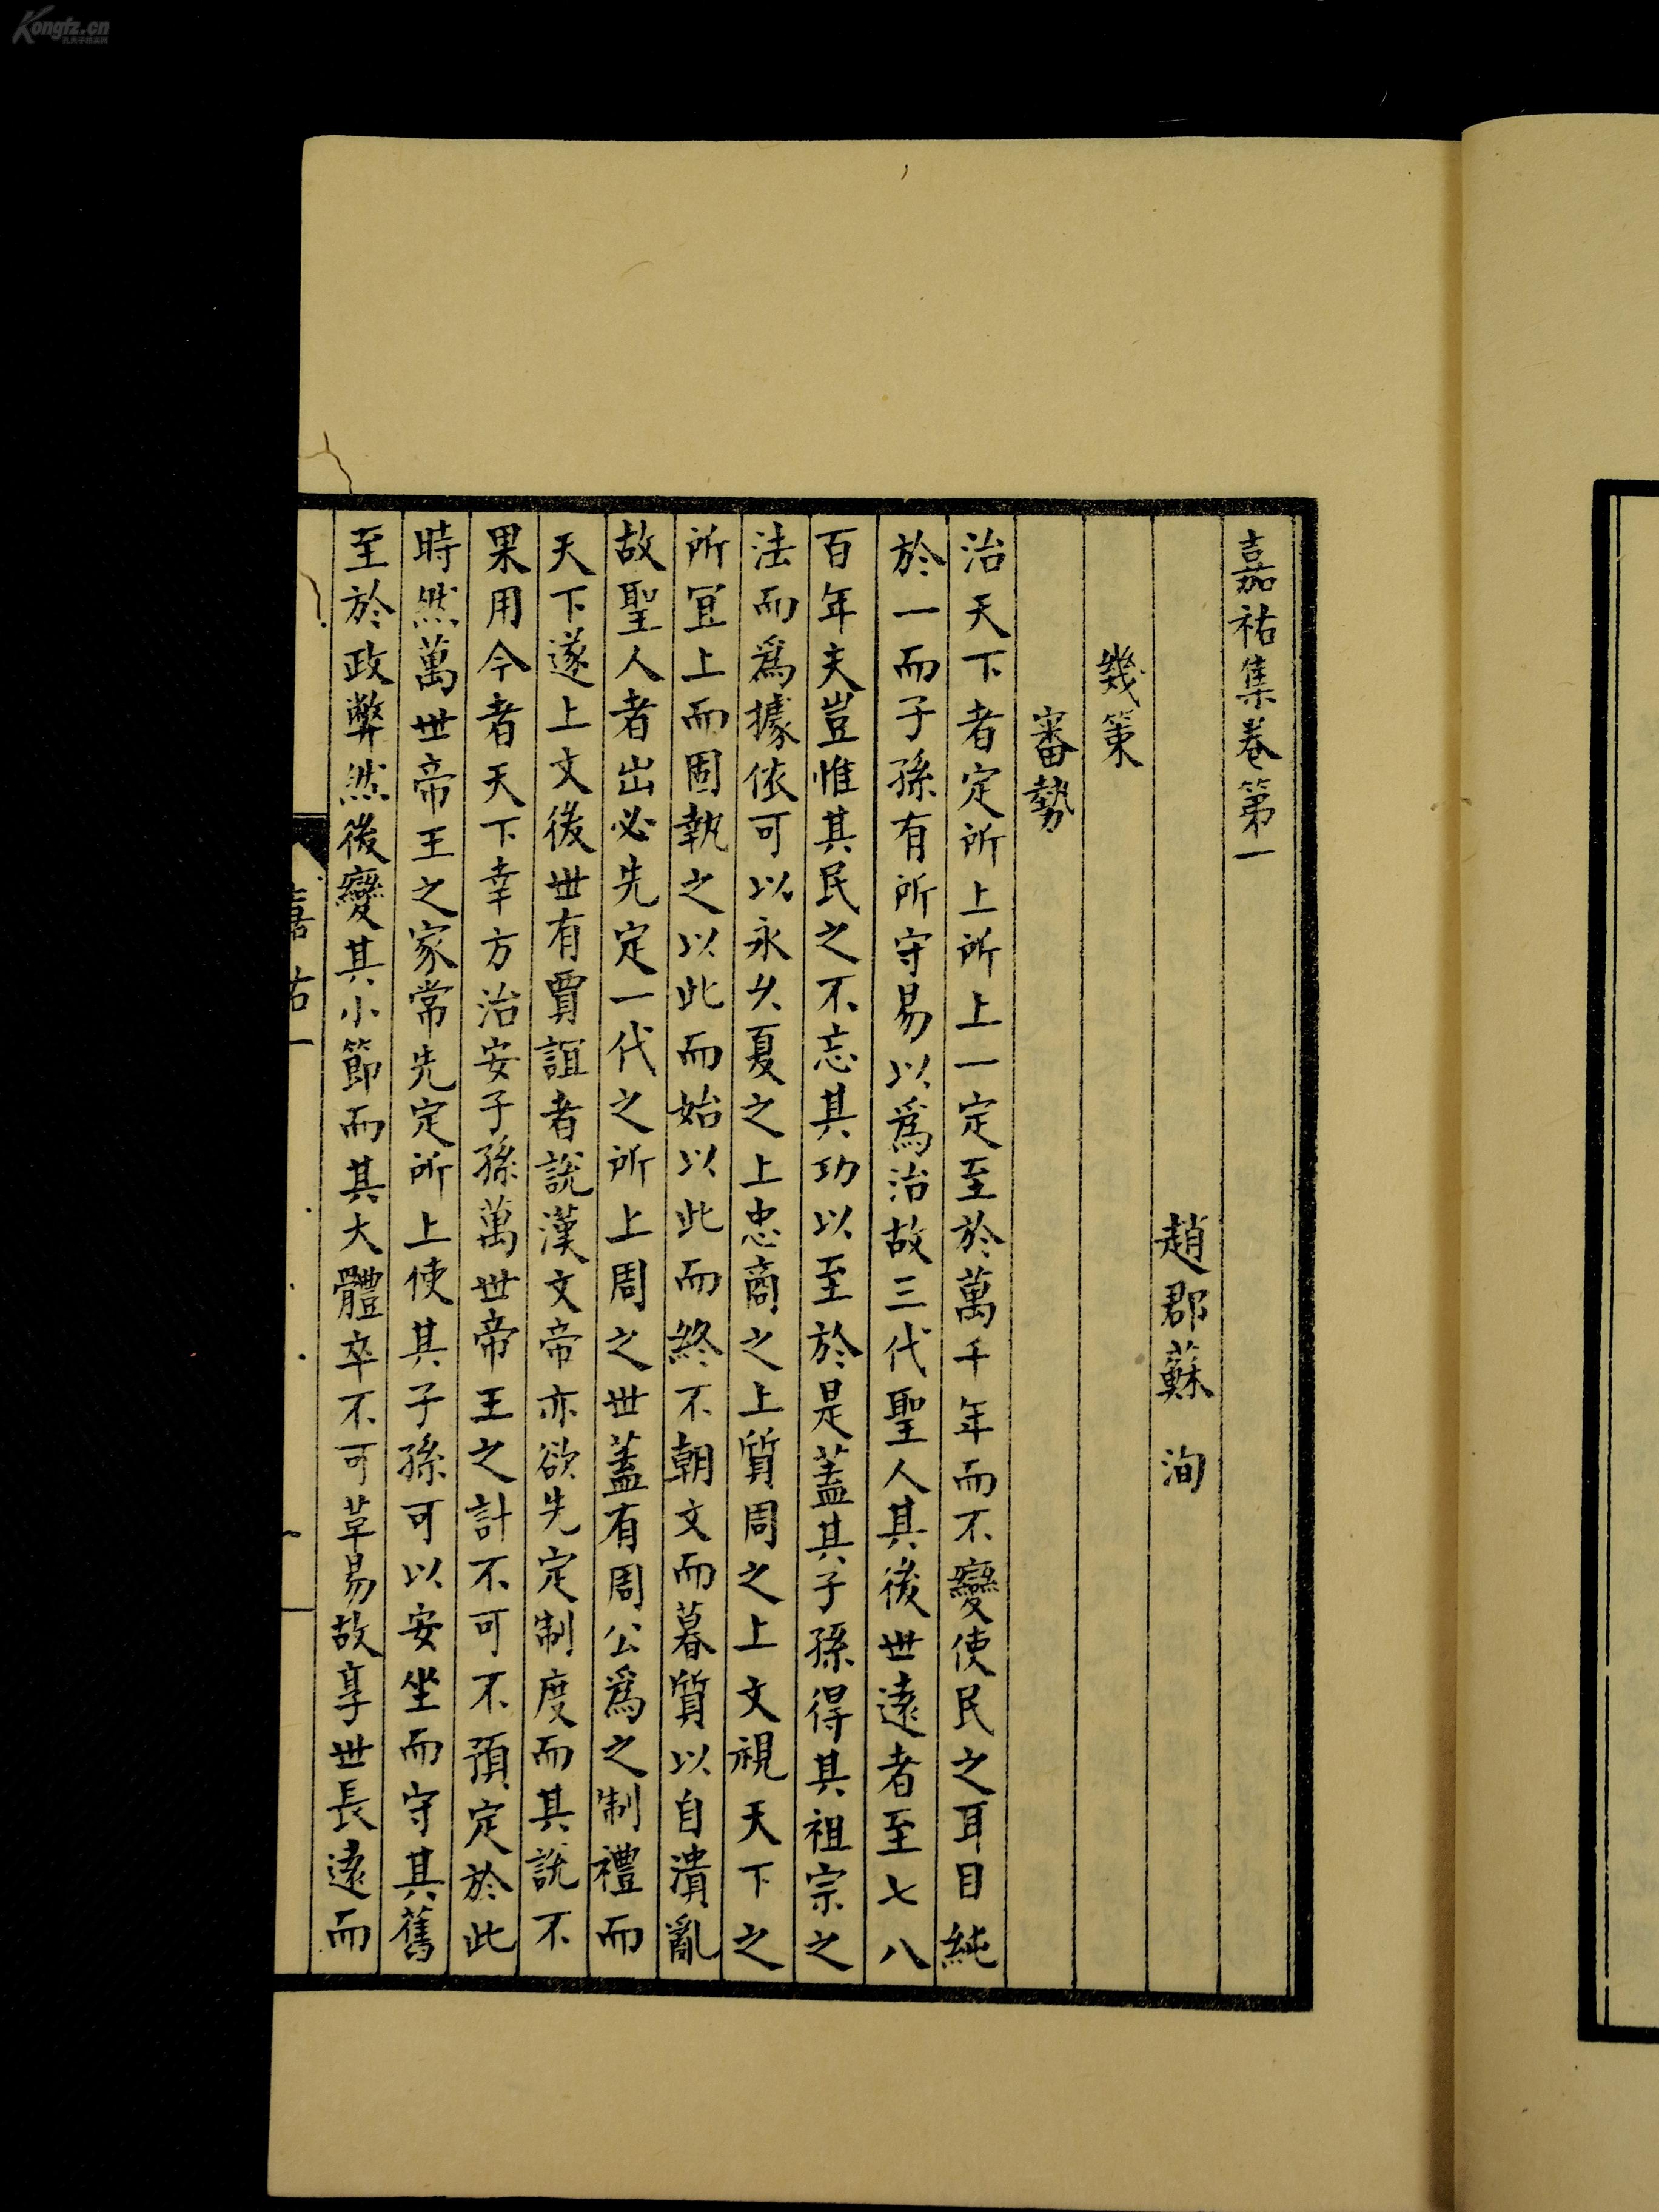 Kongfz.cn
嘉祐集卷第一
趙郡蘇 洵
幾策
審勢
治天下者定所上所上一定至於萬千年而不變使民之耳目純
於一而子孫有所守易以爲治故三代聖人其後世遠者至七八
百年夫豈惟其民之不忘其功以至於是蓋其子孫得其祖宗之
法而爲據依可以永久夏之上忠商之上質周之上文視天下之
所宜上而固執之以此而始以此而終不朝文而暮質以自潰亂
故聖人者出必先定一代之所上周之世蓋有周公爲之制禮而
天下遂上文後世有賈誼者說漢文帝亦欲先定制度而其說不
果用今者天下幸方治安子孫萬世帝王之計不可不預定於此
時然萬世帝王之家常先定所上使其子孫可以安坐而守其舊
至於政弊然後變其小節而其大體卒不可革易故享世長遠而
嘉祐一